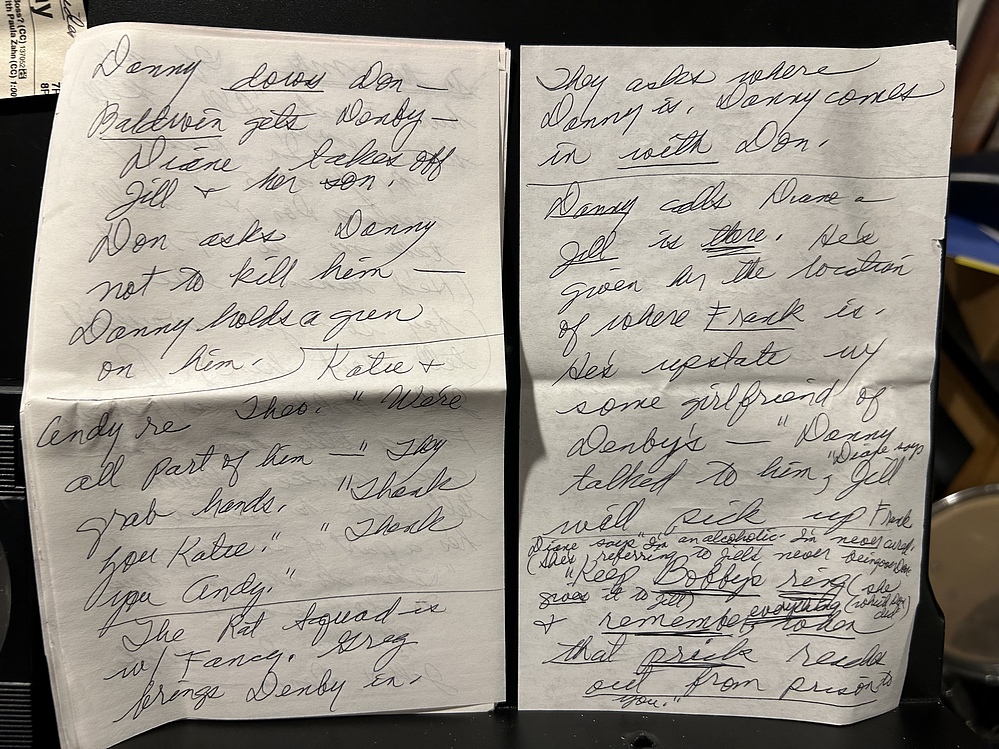 Boss? (CC) 137052
ith Paula Zahn (CC) 1:00
Danny downs Don —
Baldwin gets Denby —
Diane takes off
Jill & her son.
Don asks Danny
not to kill him —
Danny holds a gun
on him.
Katie &
Andy re Theo. "We're
all part of him —" They
grab hands. "Thank
you Katie." "Thank
you Andy."
The Rat Squad is
w/ Fancy. Greg
brings Denby in.
They asks where
Danny is. Danny comes
in with Don.
Danny calls Diane &
Jill is there. He's
given her the location
of where Frank is.
He's upstate w/
some girlfriend of
Denby's — "Danny
talked to him, "Diane says
Jill
will pick up Frank
Diane says "I'm an alcoholic. I'm never cured.
(She's referring to Jill's never being over Don
"Keep Bobby's ring (she
gives it to Jill)
& remember everything (which Don did) when
that prick reads
out from prison to
you."